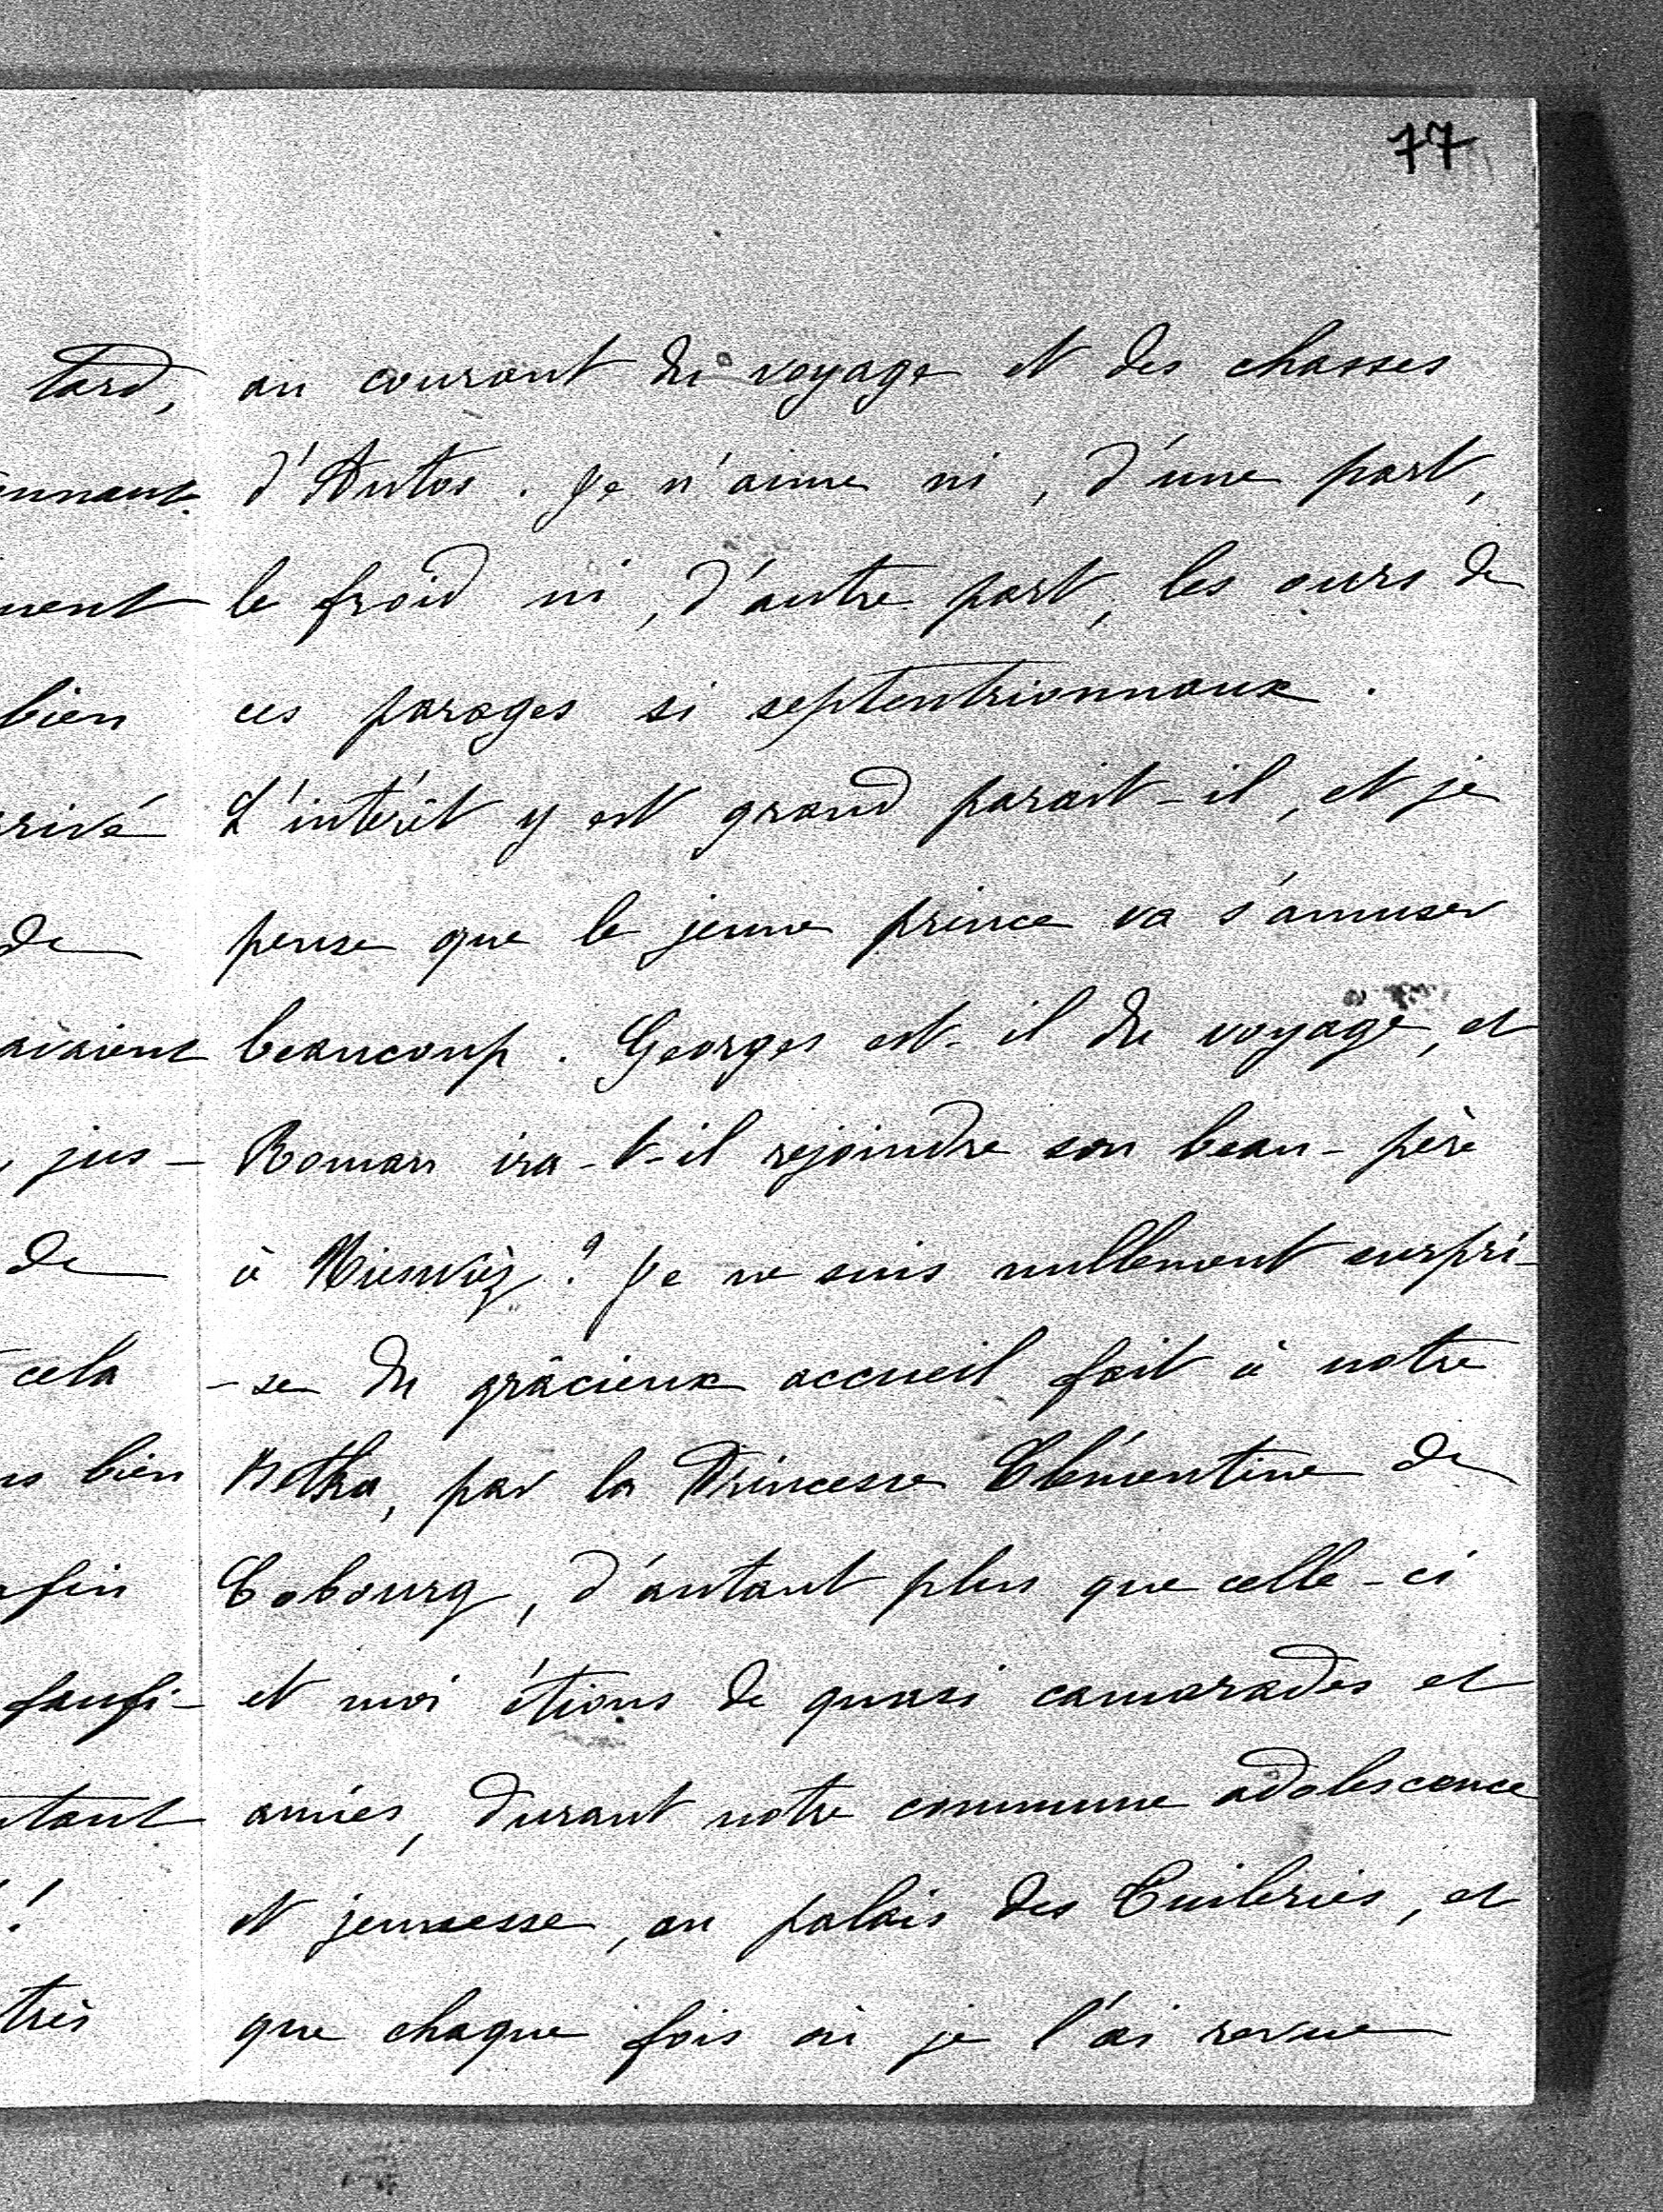 77
au courant du voyage et des chasses
d'Antos. Je n'aime ni, d'une part,
le froid ni, d'autre part, les ours de
ces parages si septentrionnaux.
L'intérêt y est grand parait-il, et je
pense que le jeune prince va s'amuser
beaucoup. Georges est-il du voyage, et
Roman ira-t-il rejoindre son beau-père
à Nieswiez? Je ne suis nullement surpri-
-se du grâcieux accueil fait à notre
Betka, par la Princesse Clémentine de
Cobourg, d'autant plus que celle-ci
et moi étions de quasi camarades et
amies, durant notre commune adolescence
et jeunesse, au palais des Tuileries, et
que chaque fois où je l'ai revue
tard,
ment
bien
rivé
de
avaient
, jus-
de
cela
bien
faufi-
tant
!
très